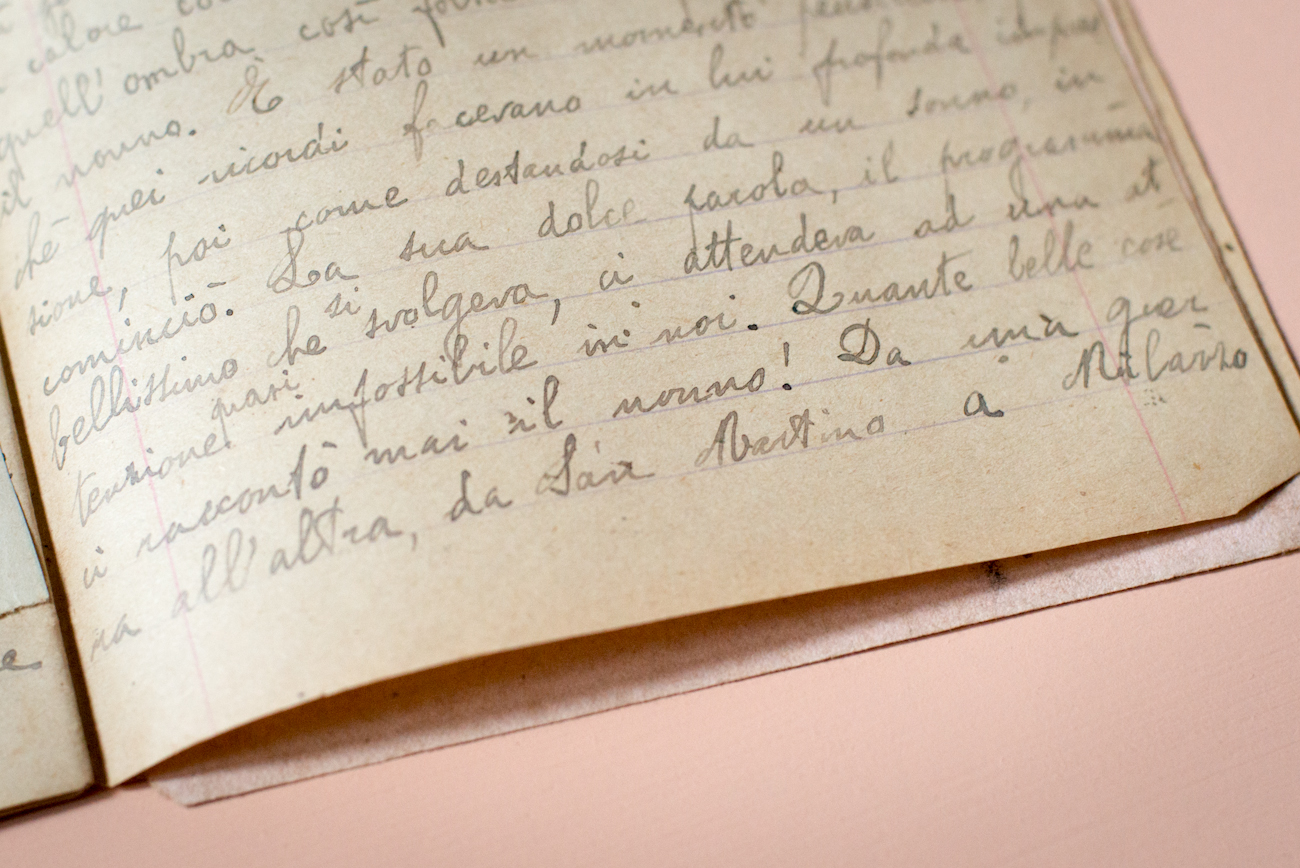 calore
quell'ombra così
il nonno. È stato un momento
chè quei ricordi facevano in lui profonda impres
sione, poi come destandosi da un sonno, in
cominciò. La sua dolce parola, il programma
bellissimo che si svolgeva, ci attendeva ad una at
tenzione quasi impossibile in noi. Quante belle cose
ci raccontò mai il nonno! Da una guer
ra all'altra, da San Martino a Milazzo